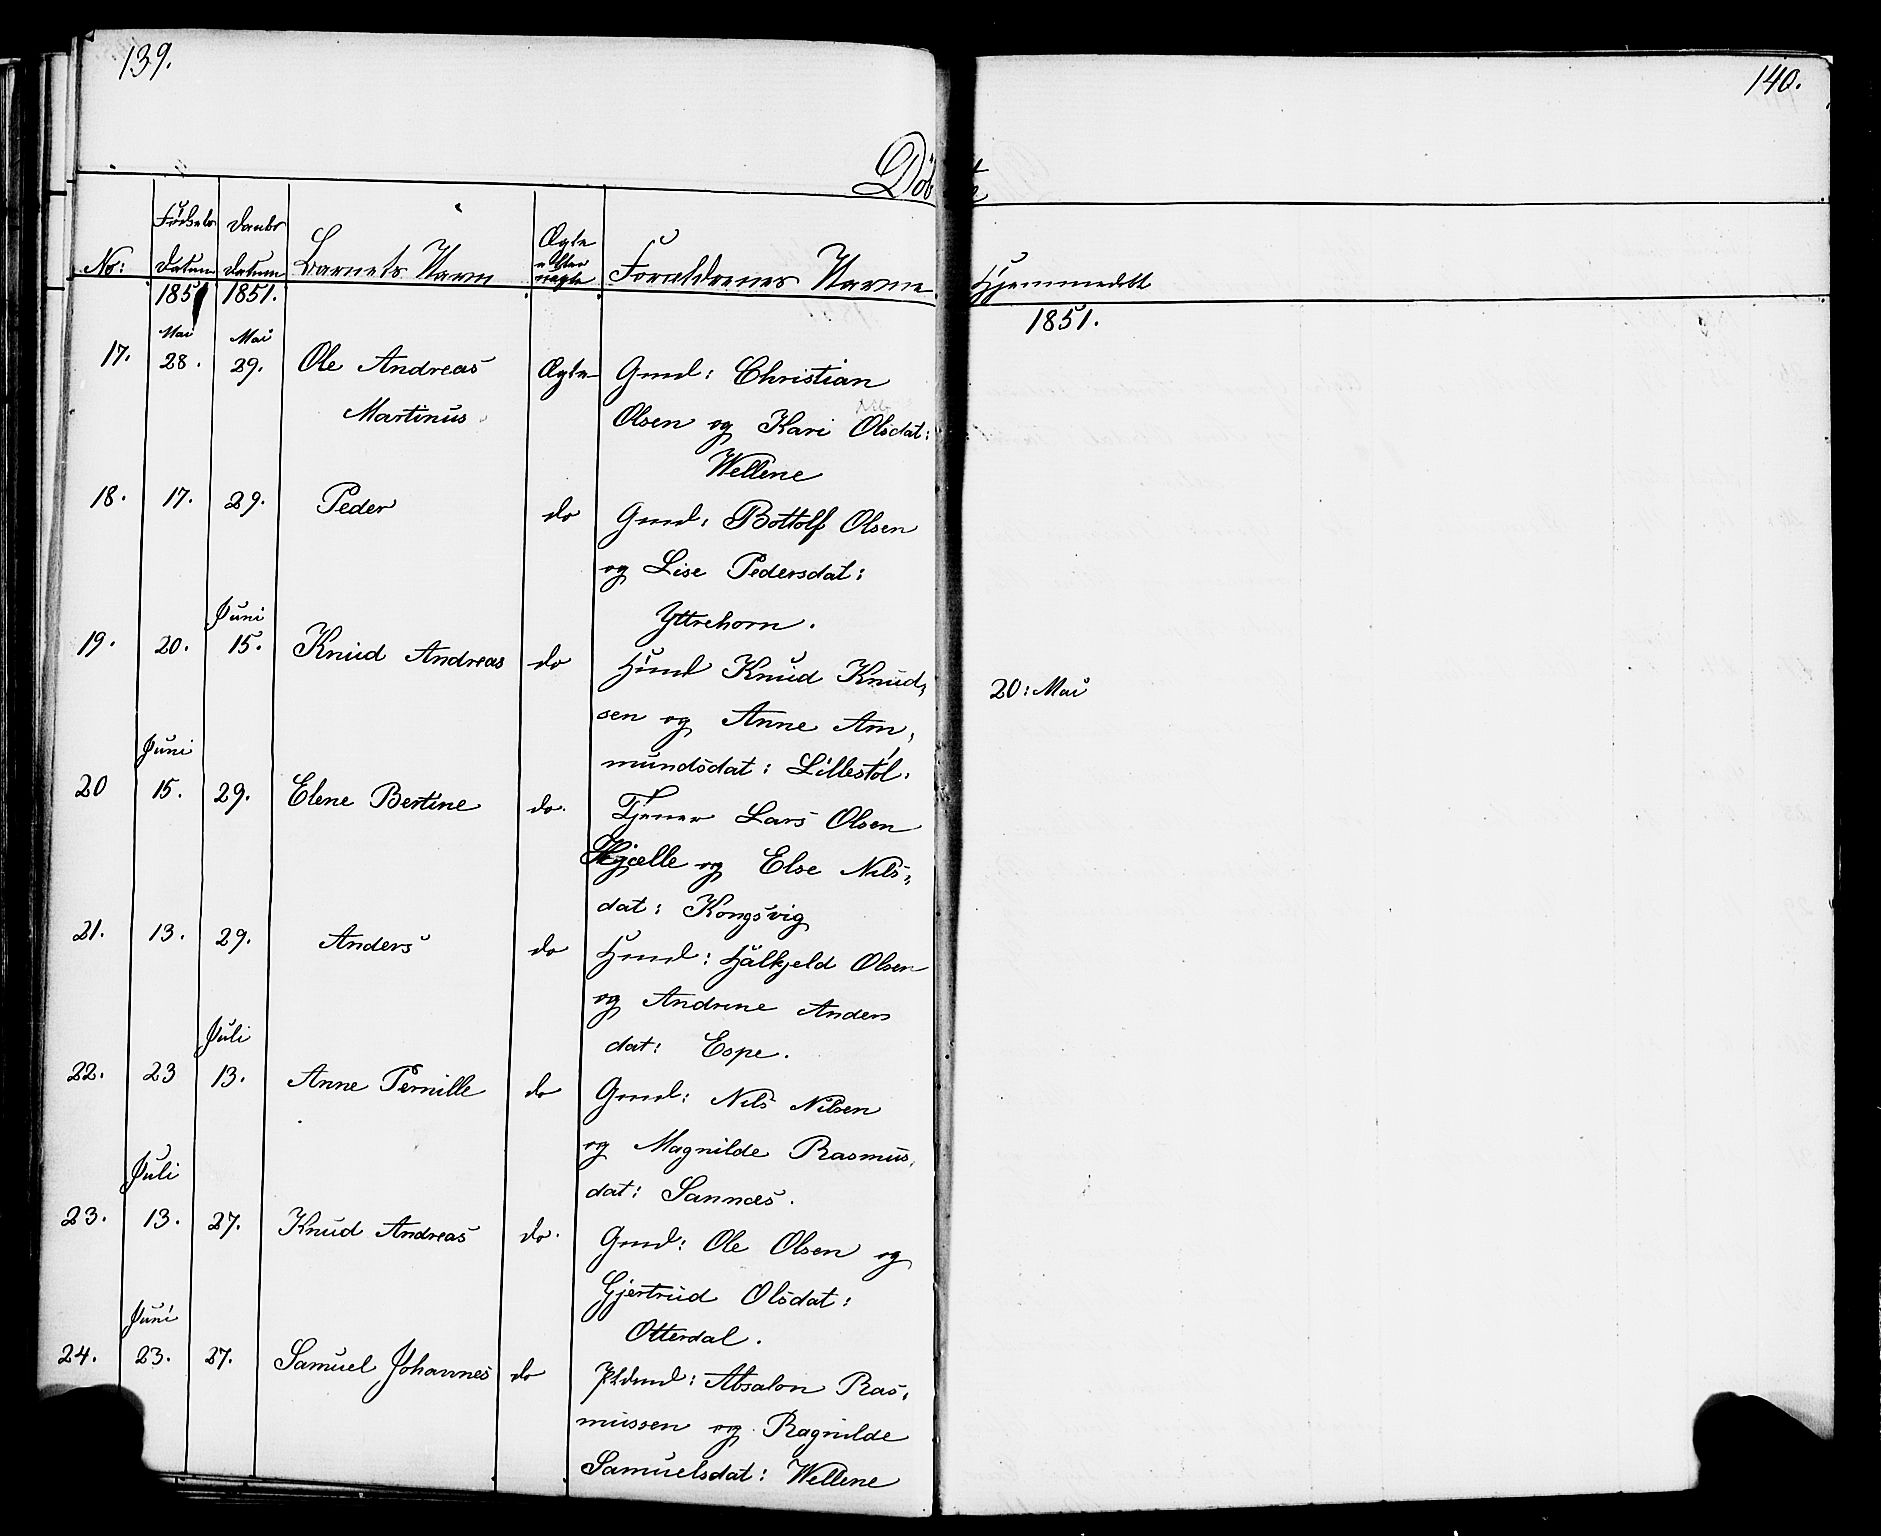 139.
140.
Døbte
No: Fødsels Datum Daabs Datum Barnets Navn Ægte eller uægte Forældrenes Navne Hjemmedøbt
1851 1851. 1851.
Mai Mai
17. 28. 29. Ole Andreas Ægte Gmd: Christian
Martinus Olsen og Kari Olsdat:
Wellene
18. 17. 29. Peder do Gmd: Bottolf Olsen
og Lise Pedersdat:
Yttrehorn.
Juni
19. 20. 15. Knud Andreas do Huusmd Knud Knud, 20: Mai
sen og Anne Am,
mundsdat: Lillestøl.
Juni
20 15. 29. Elene Bertine do. Tjener Lars Olsen
Hjelle og Else Nils,
dat: Kongsvig
21. 13. 29. Anders do Hmd: Halkjeld Olsen
og Andrine Anders
dat: Espe.
Juli
22. 23 13. Anne Pernille do Gmd: Nils Nilsen
og Magnilde Rasmus,
dat: Sannæs.
Juli
23. 13. 27. Knud Andreas do. Gmd: Ole Olsen og
Gjertrud Olsdat:
Otterdal.
Juni
24. 23. 27. Samuel Johannes do Absalon Ras,
mussen og Ragnilde
Samuelsdat: Wellene